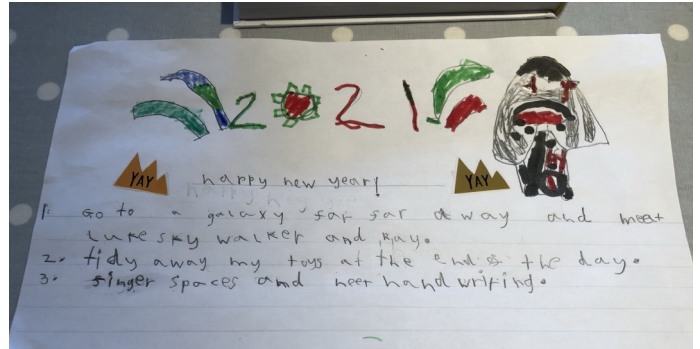 2021
YAY happy new year! YAY
1. Go to a galaxy far far a way and meet
Luke sky walker and Ray.
2. tidy away my toys at the end of the day.
3. finger spaces and neet hand writing.